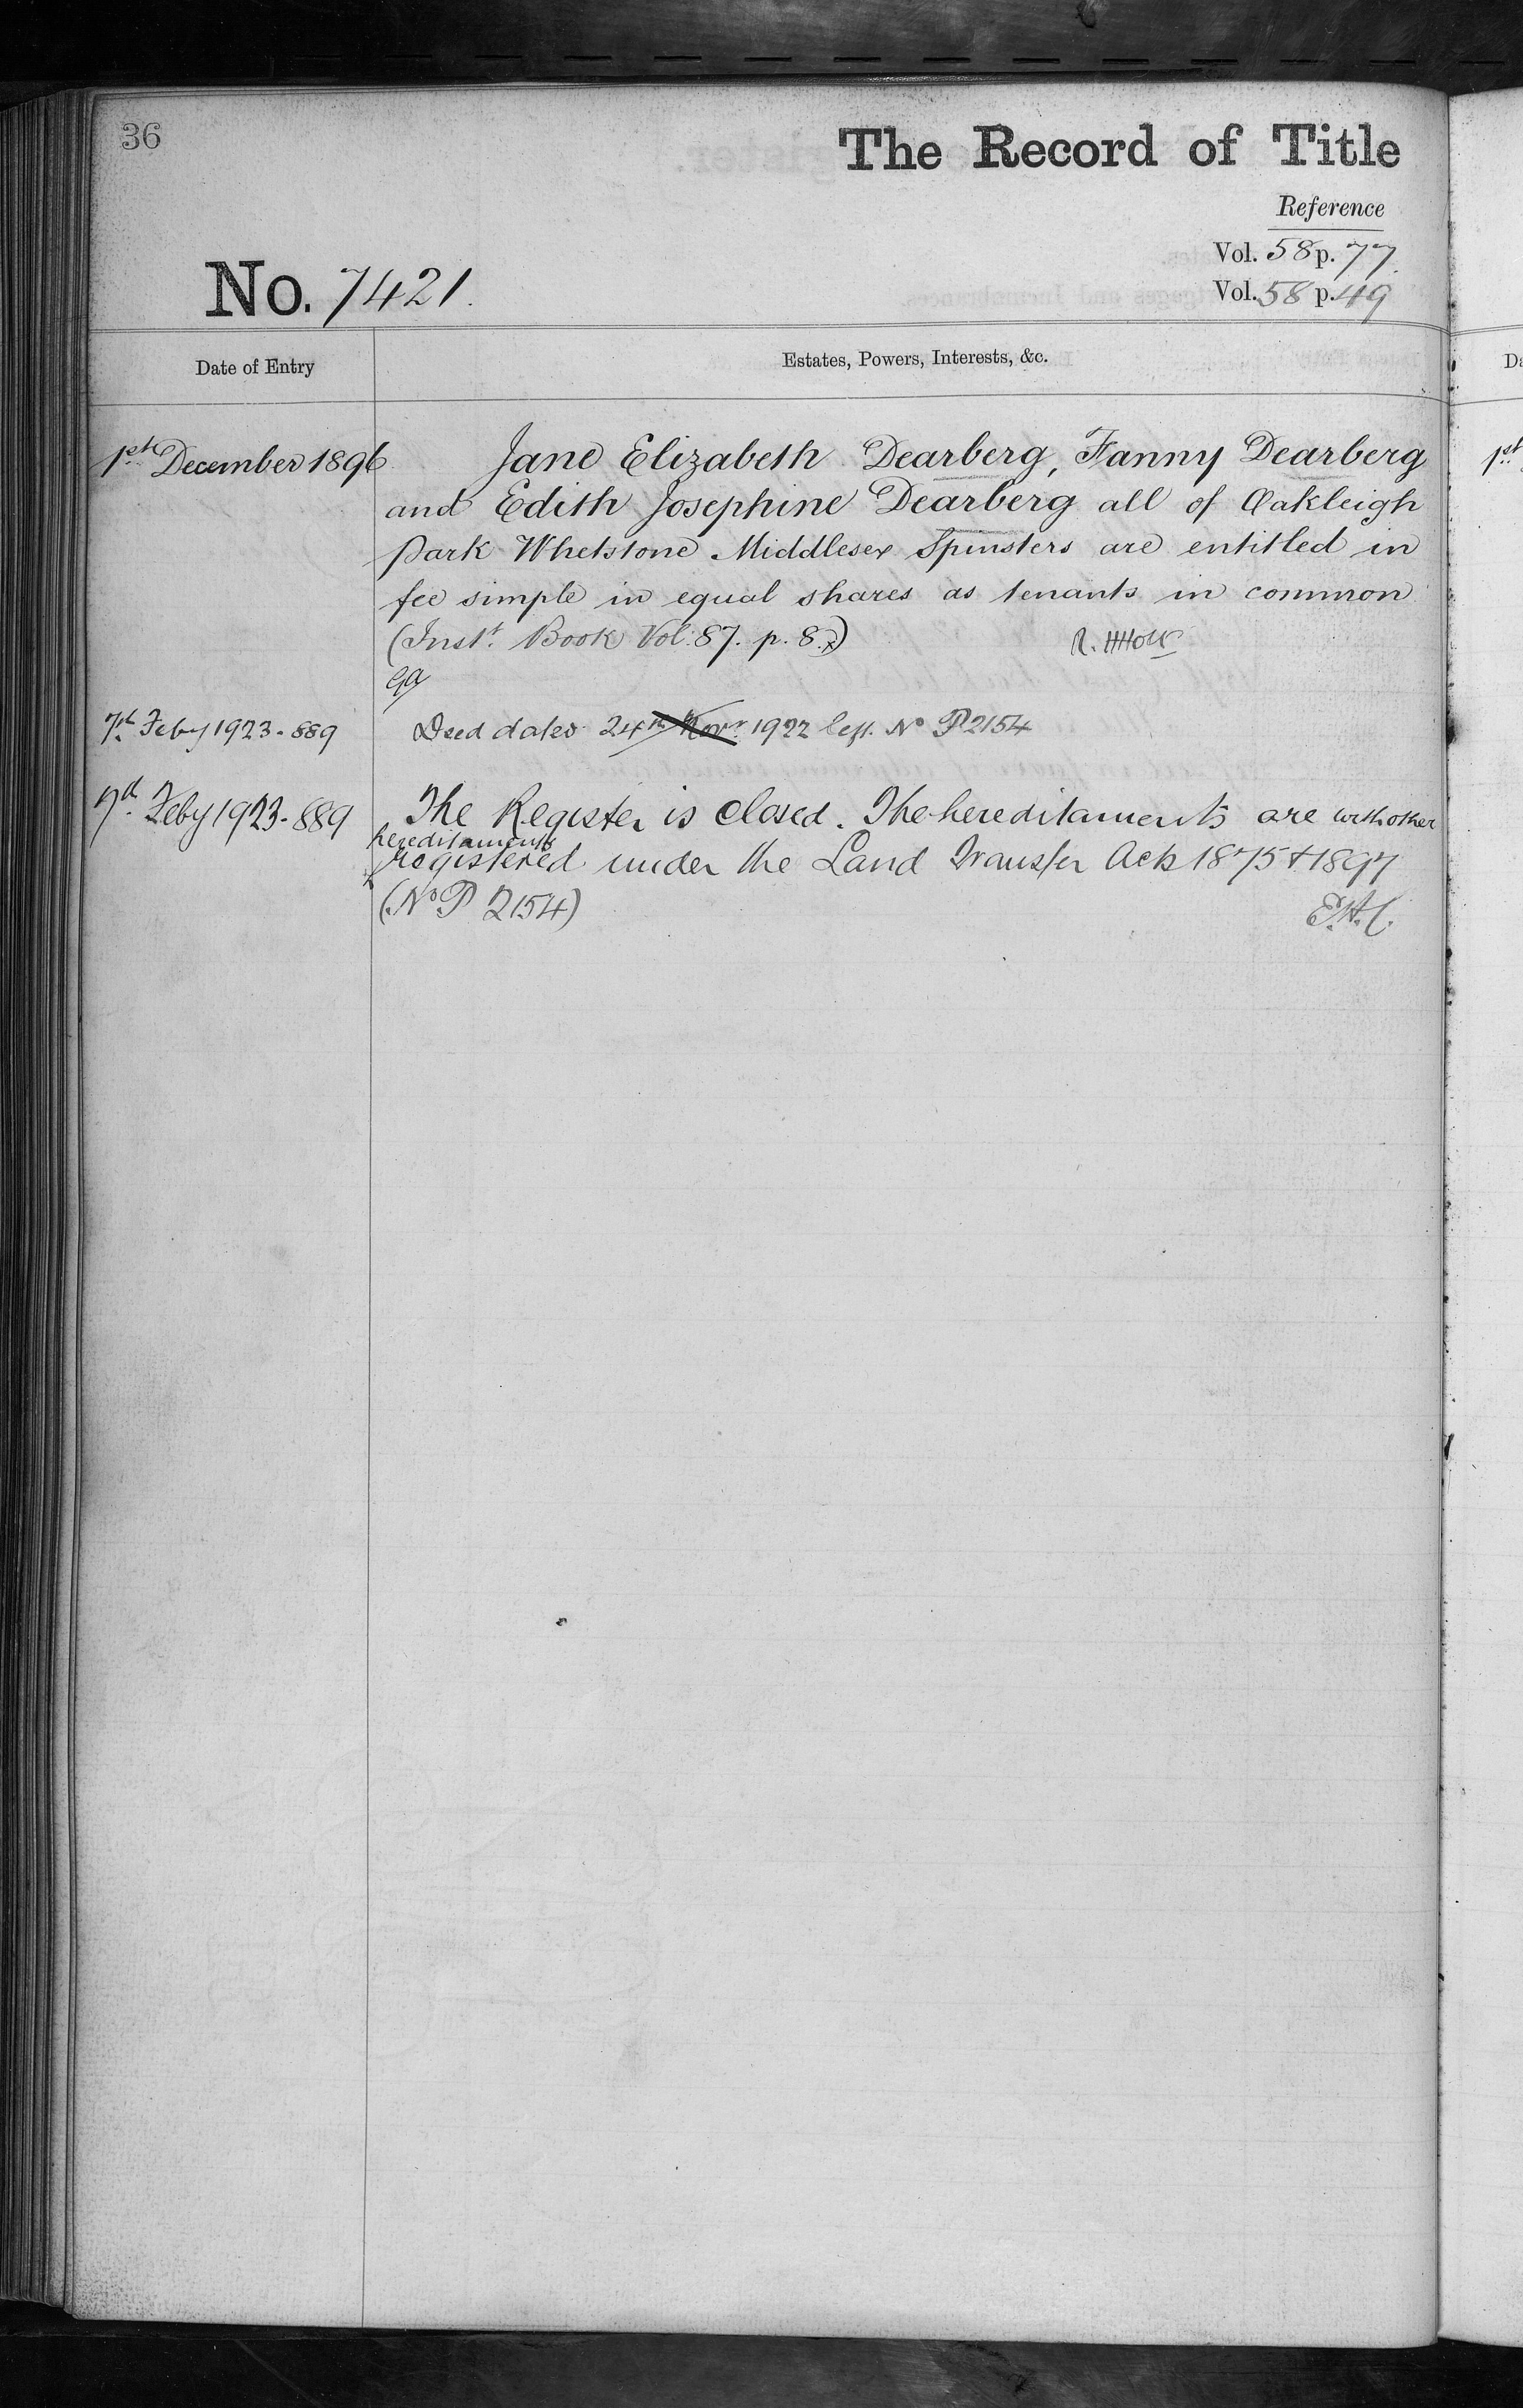 36
The Record of Title
Reference
Vol. 58 p. 77.
No. 7421.
Vol. 58 p. 49
Date of Entry
Estates, Powers, Interests, &c.
1st December 1896
Jane Elizabeth Dearberg, Fanny Dearberg
and Edith Josephine Dearberg all of Oakleigh
Park Whetstone Middlesex Spinsters are entitled in
fee simple in equal shares as tenants in common
(Inst. Book Vol. 87. p. 8.)
7th Feby 1923. 889
Deed dated 24th Novr 1922 left. No P 2154
7th Feby 1923. 889
The Register is closed. The hereditaments are with other
hereditaments
registered under the Land Transfer Acts 1875 & 1897
(No P 2154)
1st